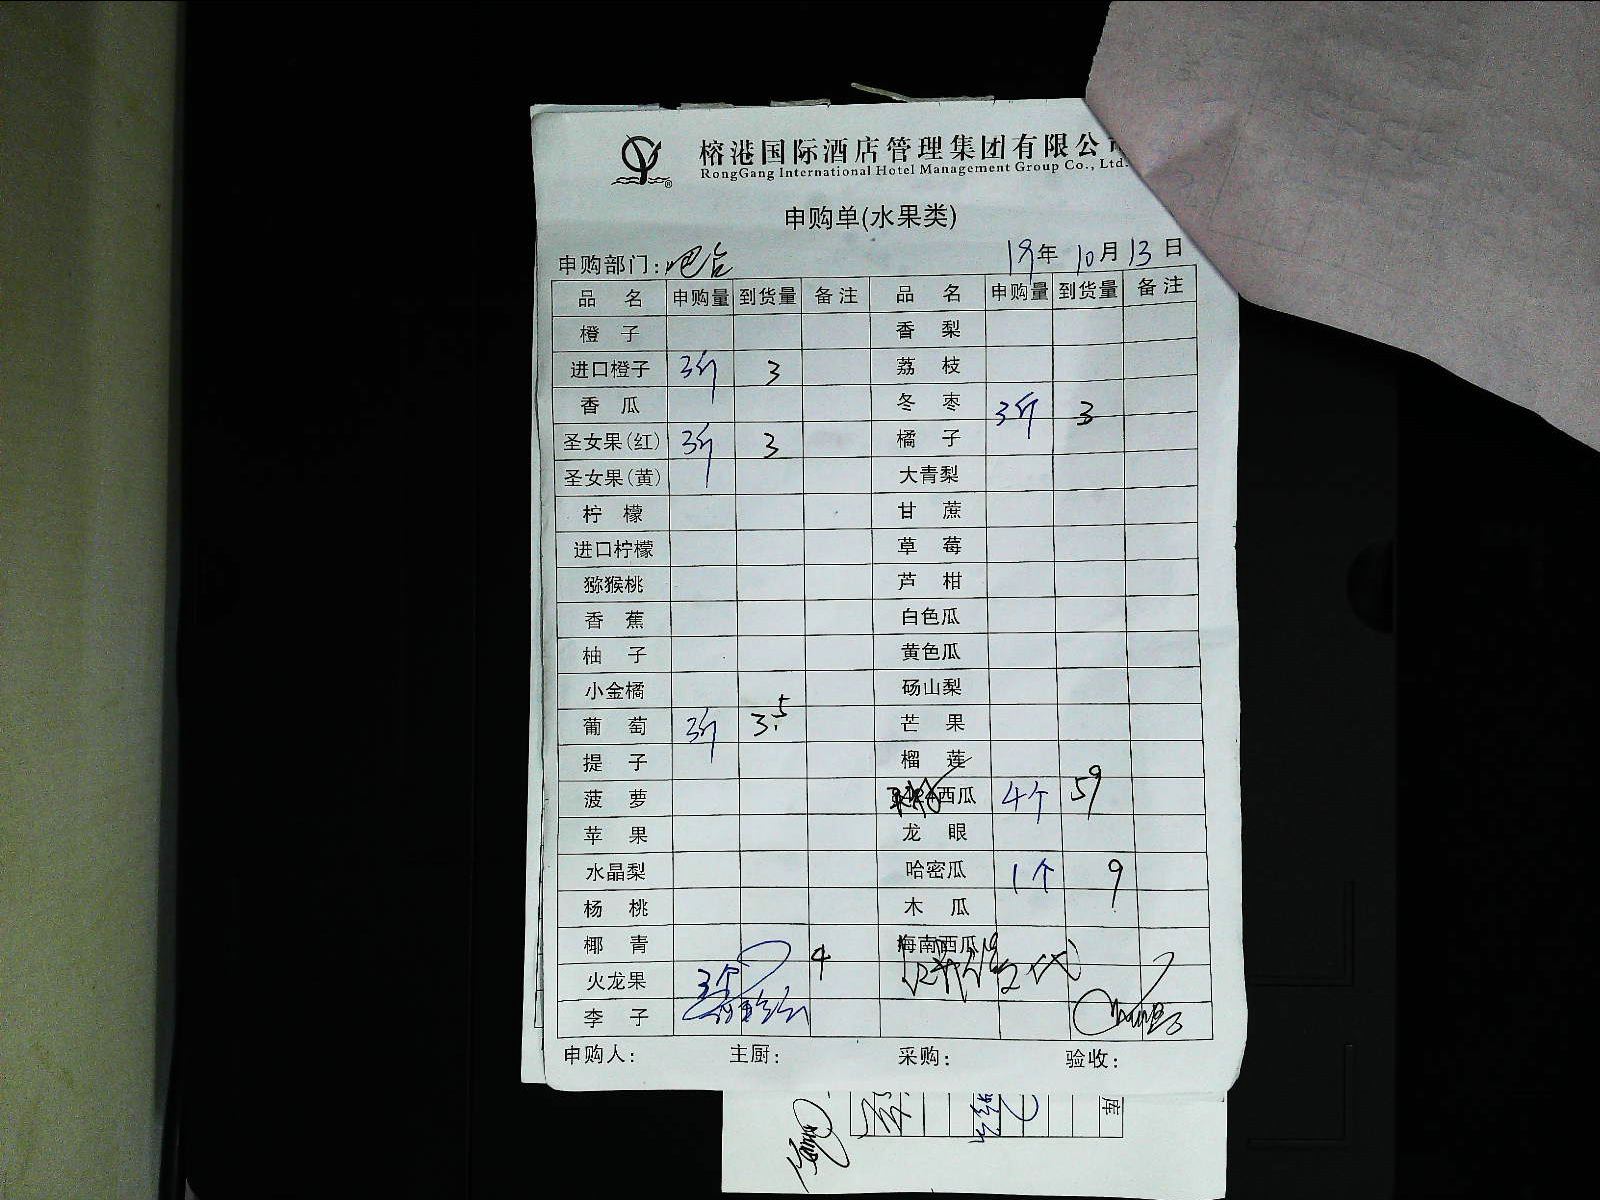 榕港国际酒店管理集团有限公司
RongGang International Hotel Management Group Co., Ltd.
申购单(水果类)
申购部门:吧台 19年10月13日
品名 申购量 到货量 备注 品名 申购量 到货量 备注
橙子 香梨
进口橙子 3斤 3 荔枝
香瓜 冬枣 3斤 3
圣女果(红) 3斤 3 橘子
圣女果(黄) 大青梨
柠檬 甘蔗
进口柠檬 草莓
猕猴桃 芦柑
香蕉 白色瓜
柚子 黄色瓜
小金橘 砀山梨
葡萄 3斤 3.5 芒果
提子 榴莲
菠萝 西瓜 4个 59
苹果 龙眼
水晶梨 哈密瓜 1个 9
杨桃 木瓜
椰青 4 海南西瓜
火龙果 3个
李子
申购人: 主厨: 采购: 验收:
库